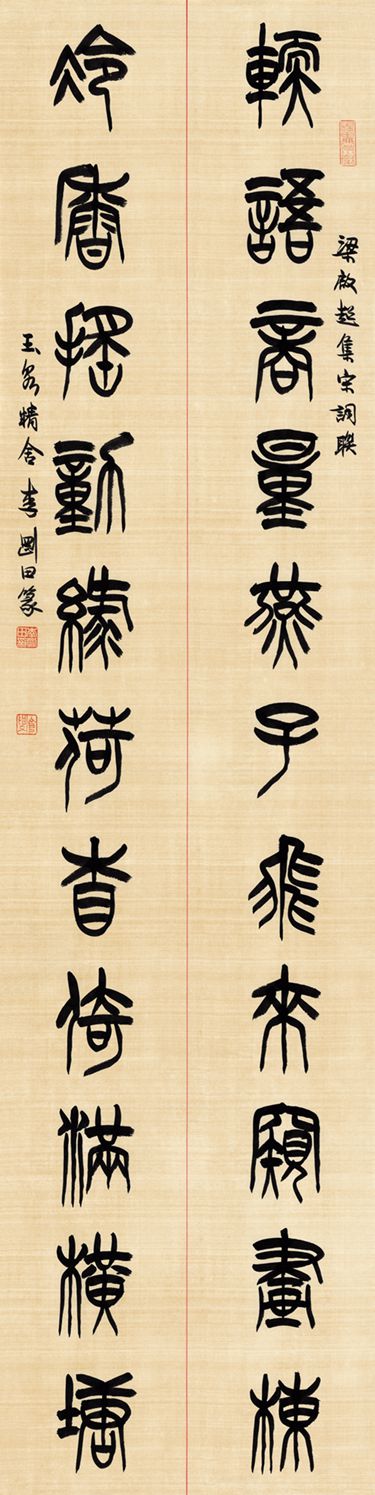 梁啟超集宋詞聯
輭語商量燕子飛來窺畫棟
冷香摇動緑荷相倚滿橫塘
精舍李剛田篆